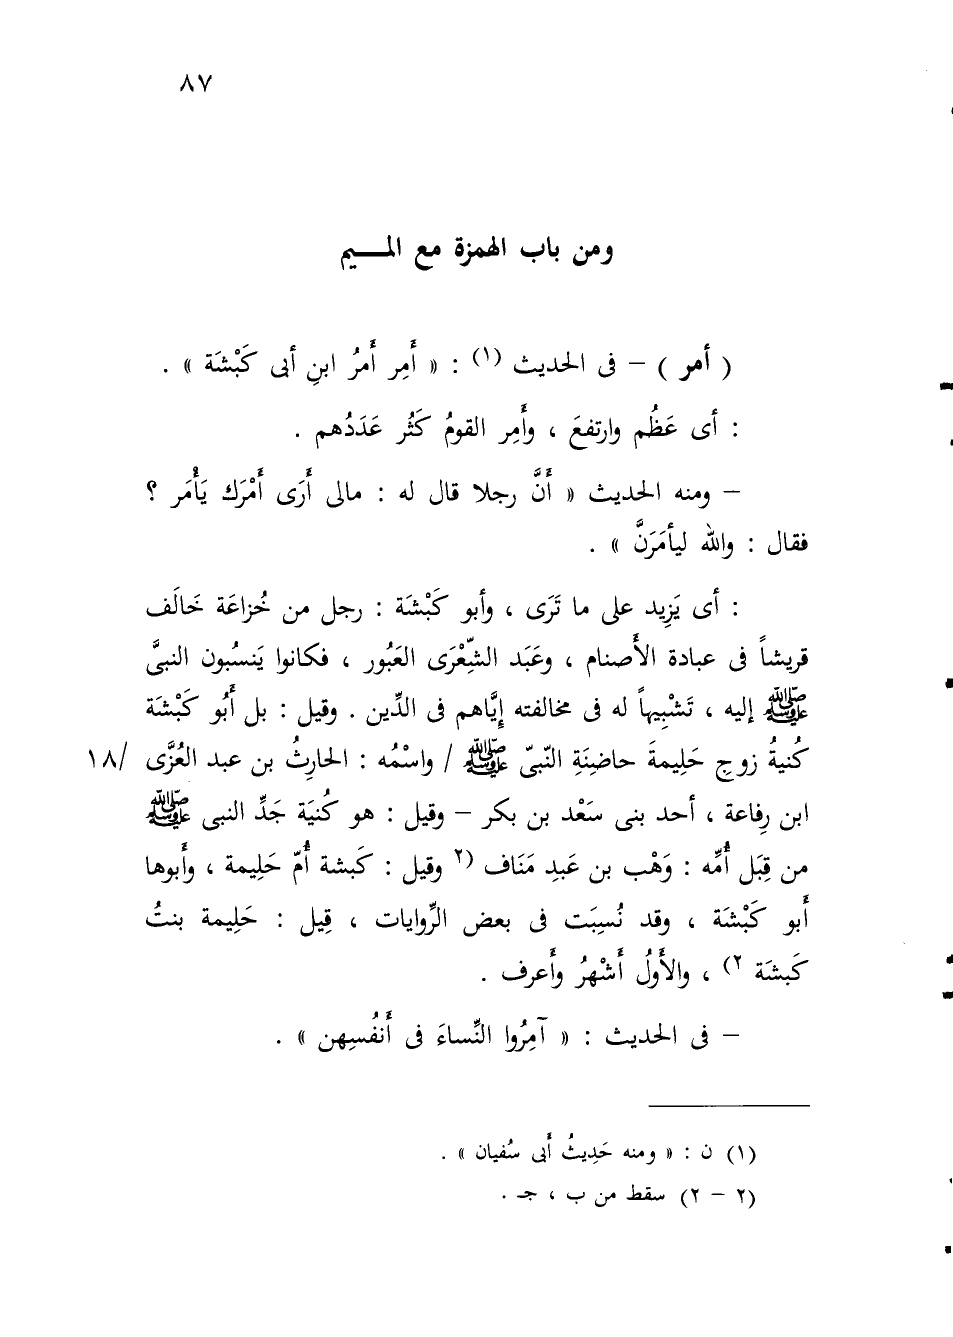 ٨٧
ومن باب الهمزة مع المـــيم
( أمر ) – فى الحديث (١) : « أَمِر أَمرُ ابنِ أبى كَبْشَة » .
: أى عَظُم وارتفعَ ، وأَمِر القومُ كَثُر عَدَدُهم .
– ومنه الحديث « أَنَّ رجلا قال له : مالى أَرَى أَمْرَك يَأْمَر ؟
فقال : والله ليأمَرَنَّ » .
: أى يَزِيد على ما تَرَى ، وأبو كَبْشَة : رجل من خُزاعَة خَالَف
قريشاً فى عبادة الأَصنام ، وعَبَد الشِّعْرَى العَبُور ، فكانوا يَنسُبون النبىَّ
ﷺ إليه ، تَشْبِيهاً له فى مخالفته إيَّاهم فى الدِّين . وقيل : بل أَبُو كَبْشَة
كُنيةُ زوجِ حَلِيمةَ حاضِنَةِ النّبىّ ﷺ / واسْمُه : الحارِثُ بن عبد العُزَّى /١٨
ابن رِفاعة ، أحد بنى سَعْد بن بكر – وقيل : هو كُنيَة جَدِّ النبى ﷺ
من قِبَل أُمِّه : وَهْب بن عَبدِ مَنَاف (٢ وقيل : كَبشة أُمّ حَلِيمة ، وأَبوها
أَبو كَبْشَة ، وقد نُسِبَت فى بعض الرِّوايات ، قِيل : حَلِيمة بنتُ
كَبشَة ٢) ، والأَولُ أَشْهرُ وأَعرف .
– فى الحديث : « آمِرُوا النِّساءَ فى أَنفُسِهن » .
(١) ن : « ومنه حَدِيثُ أَبى سُفيان » .
(٢ – ٢) سقط من ب ، جـ .